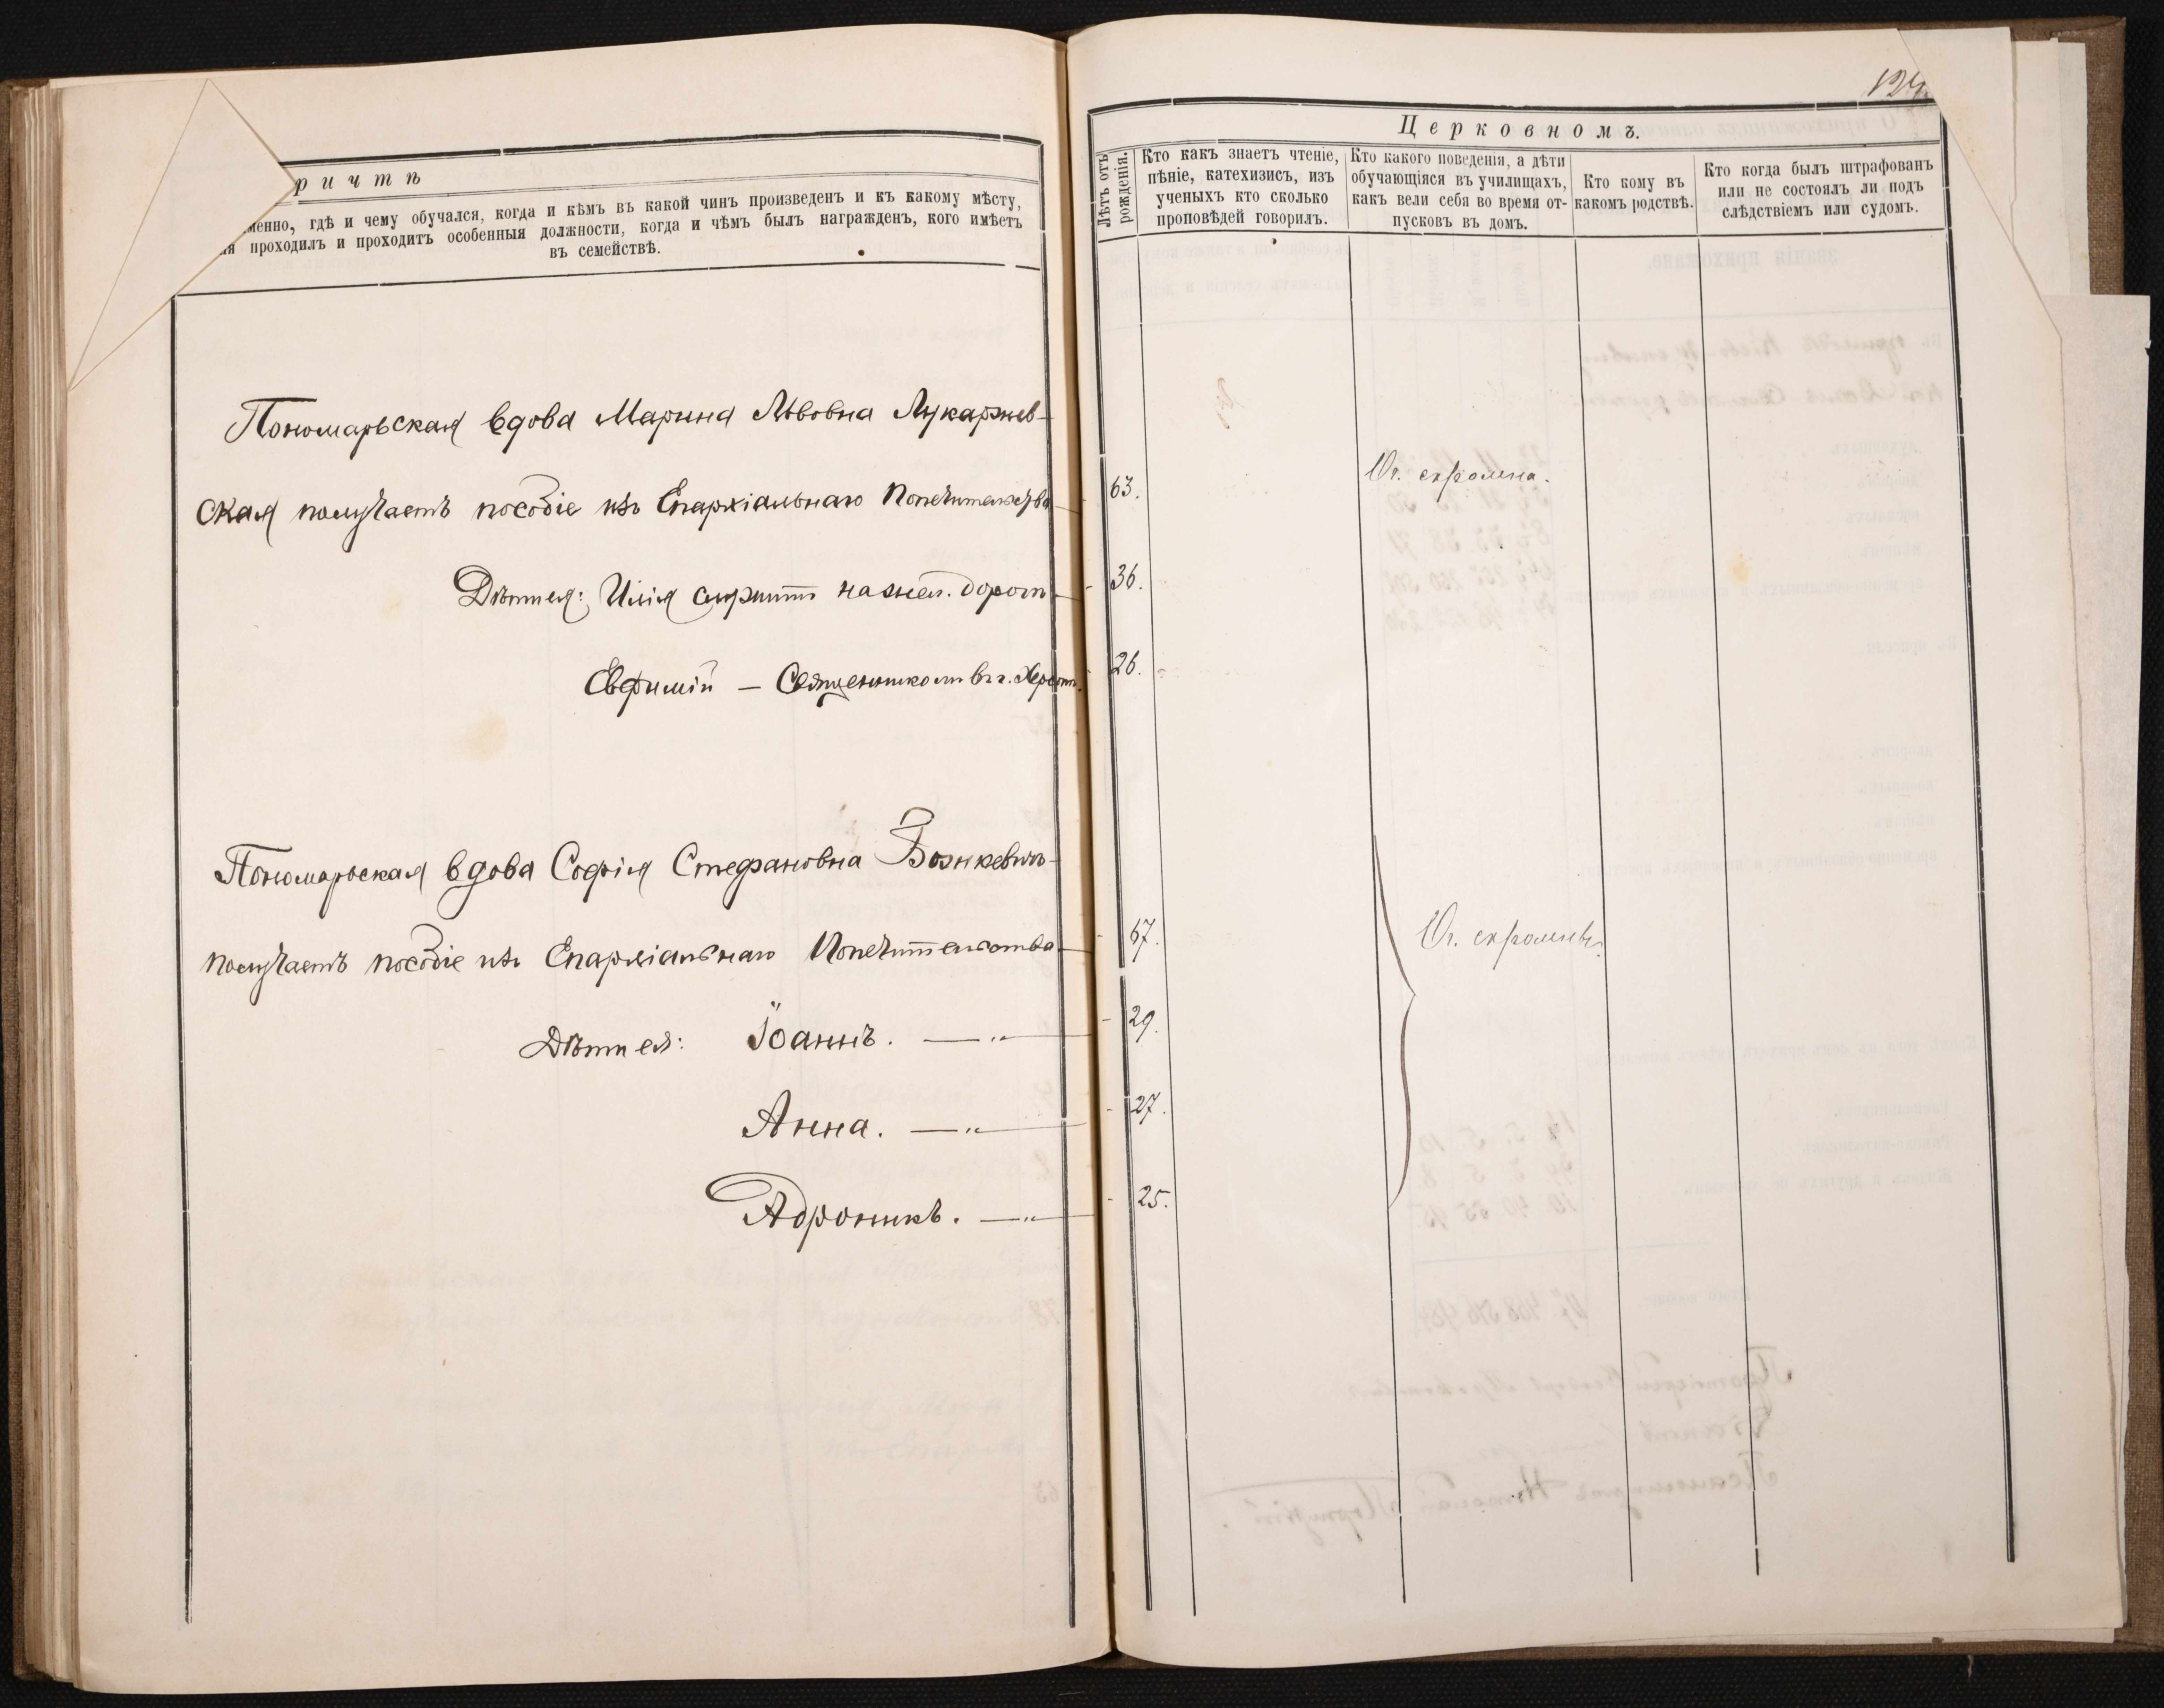 ричтѣ
менно, гдѣ и чему обучался, когда и кѣмъ въ какой чинъ произведенъ и къ какому мѣсту,
проходилъ и проходитъ особенныя должности, когда и чѣмъ былъ награжденъ, кого имѣетъ
въ семействѣ.
Пономарьская вдова Марина Львовна Лукаржев-
ская получаетъ пособіе изъ Епархіальнаго Попечительства
Дѣти ея: Илія служитъ на жел. дорогѣ
Евфимій — Священникомъ въ г.
Пономарьская вдова Софія Стефановна Вознкевичъ
получаетъ пособіе изъ Епархіальнаго Попечительства
Дѣти ея: Іоаннъ. — „
Анна. — „
Адроникъ. — „
124
Церковномъ.
Лѣтъ отъ
рожденія.
Кто какъ знаетъ чтеніе,
пѣніе, катехизисъ, изъ
ученыхъ кто сколько
проповѣдей говорилъ.
Кто какого поведенія, а дѣти
обучающіяся въ училищахъ,
какъ вели себя во время от-
пусковъ въ домъ.
Кто кому въ
какомъ родствѣ.
Кто когда былъ штрафованъ
или не состоялъ ли подъ
слѣдствіемъ или судомъ.
63.
Оч. скромна.
36.
26.
67.
Оч. скромны.
29.
27.
25.